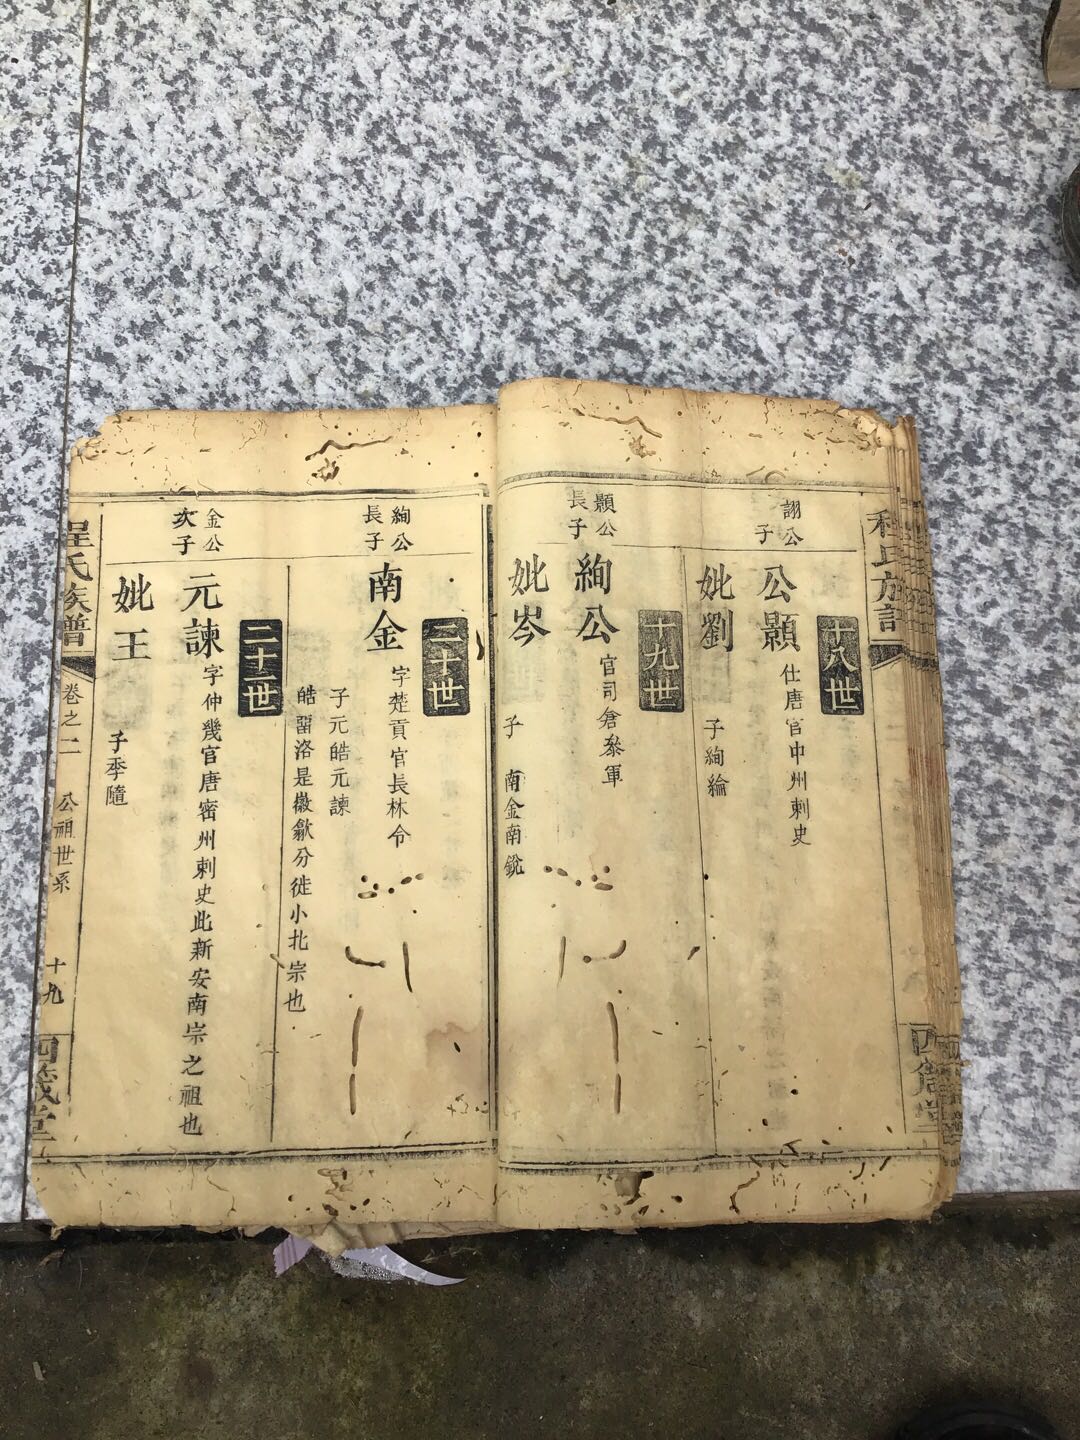 程氏族譜
四箴堂
十八世
詡公
子
公顥
仕唐官中州刺史
妣劉
子絢綸
十九世
顥公
長子
絢公
官司倉叅軍
妣岑
子 南金南銳
二十世
絢公
長子
南金
字楚貢官長林令
子元皓元諫
皓畱洛是徽歙分徙小北宗也
二十一世
金公
次子
元諫
字仲幾官唐密州刺史此新安南宗之祖也
妣王
子季隨
程氏族譜
卷之二
公祖世系
十九
四箴堂